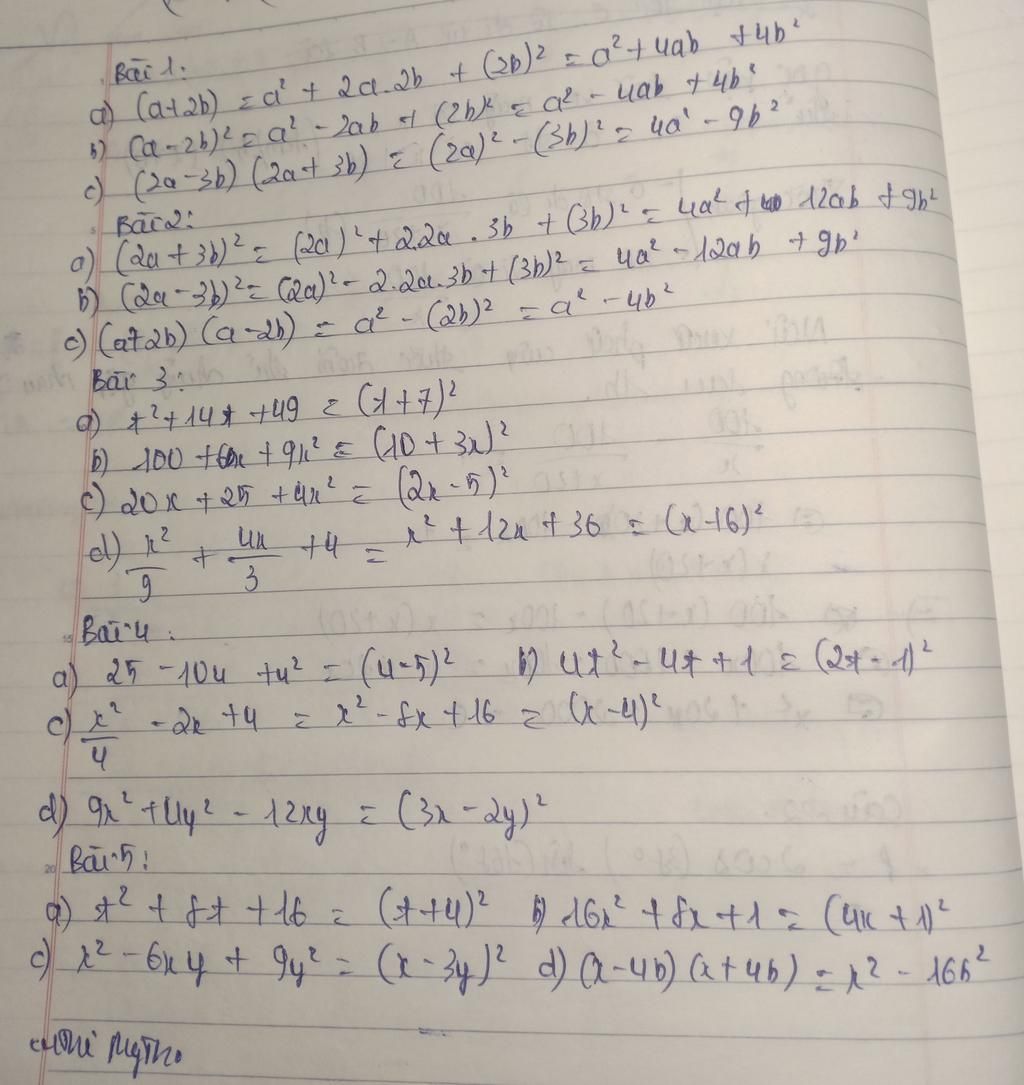 Bài 1:
a) (a+2b) = a² + 2a.2b + (2b)² = a² + 4ab + 4b²
b) (a-2b)² = a² - 2ab + (2b)² = a² - 4ab + 4b²
c) (2a-3b) (2a+3b) = (2a)² - (3b)² = 4a² - 9b²
Bài 2:
a) (2a+3b)² = (2a)² + 2.2a.3b + (3b)² = 4a² + 12ab + 9b²
b) (2a-3b)² = (2a)² - 2.2a.3b + (3b)² = 4a² - 12ab + 9b²
c) (a+2b) (a-2b) = a² - (2b)² = a² - 4b²
Bài 3:
a) t² + 14t + 49 = (t+7)²
b) 100 + 60x + 9x² = (10 + 3x)²
c) 20x + 25 + 4x² = (2x-5)²
d) x²/9 + 4x/3 + 4 = x² + 12x + 36 = (x+6)²
Bài 4:
a) 25 - 10u + u² = (u-5)² b) 4t² - 4t + 1 = (2t-1)²
c) x²/4 - 2x + 4 = x² - 8x + 16 = (x-4)²
d) 9x² + 4y² - 12xy = (3x-2y)²
Bài 5:
a) t² + 8t + 16 = (t+4)² b) 16x² + 8x + 1 = (4x+1)²
c) x² - 6xy + 9y² = (x-3y)² d) (x-4b) (x+4b) = x² - 16b²